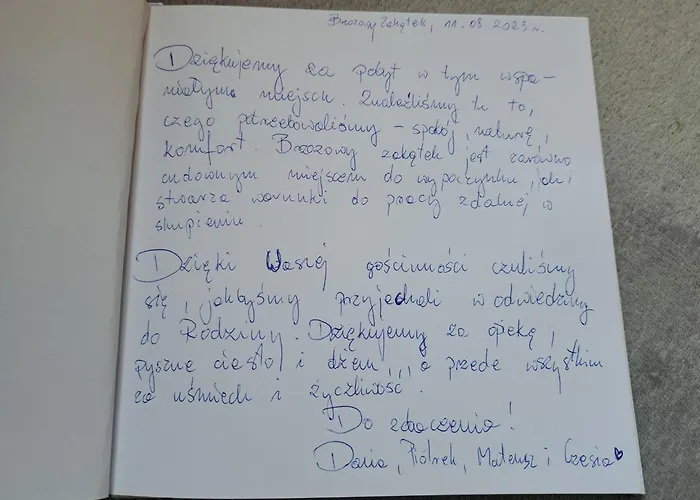 Brzozowy Zakątek, 11.08.2023 r.
Dziękujemy za pobyt w tym wspa-
niałym miejscu. Znaleźliśmy tu to,
czego potrzebowaliśmy - spokój, naturę,
komfort. Brzozowy zakątek jest zarówno
cudownym miejscem do wypoczynku, jak i
stwarza warunki do pracy zdalnej w
skupieniu.
Dzięki Waszej gościnności czuliśmy
się, jakbyśmy przyjechali w odwiedziny
do Rodziny. Dziękujemy za opiekę,
pyszne ciasto i dżem... a przede wszystkim
za uśmiech i życzliwość.
Do zobaczenia!
Daria, Piotrek, Mateusz i Czesia